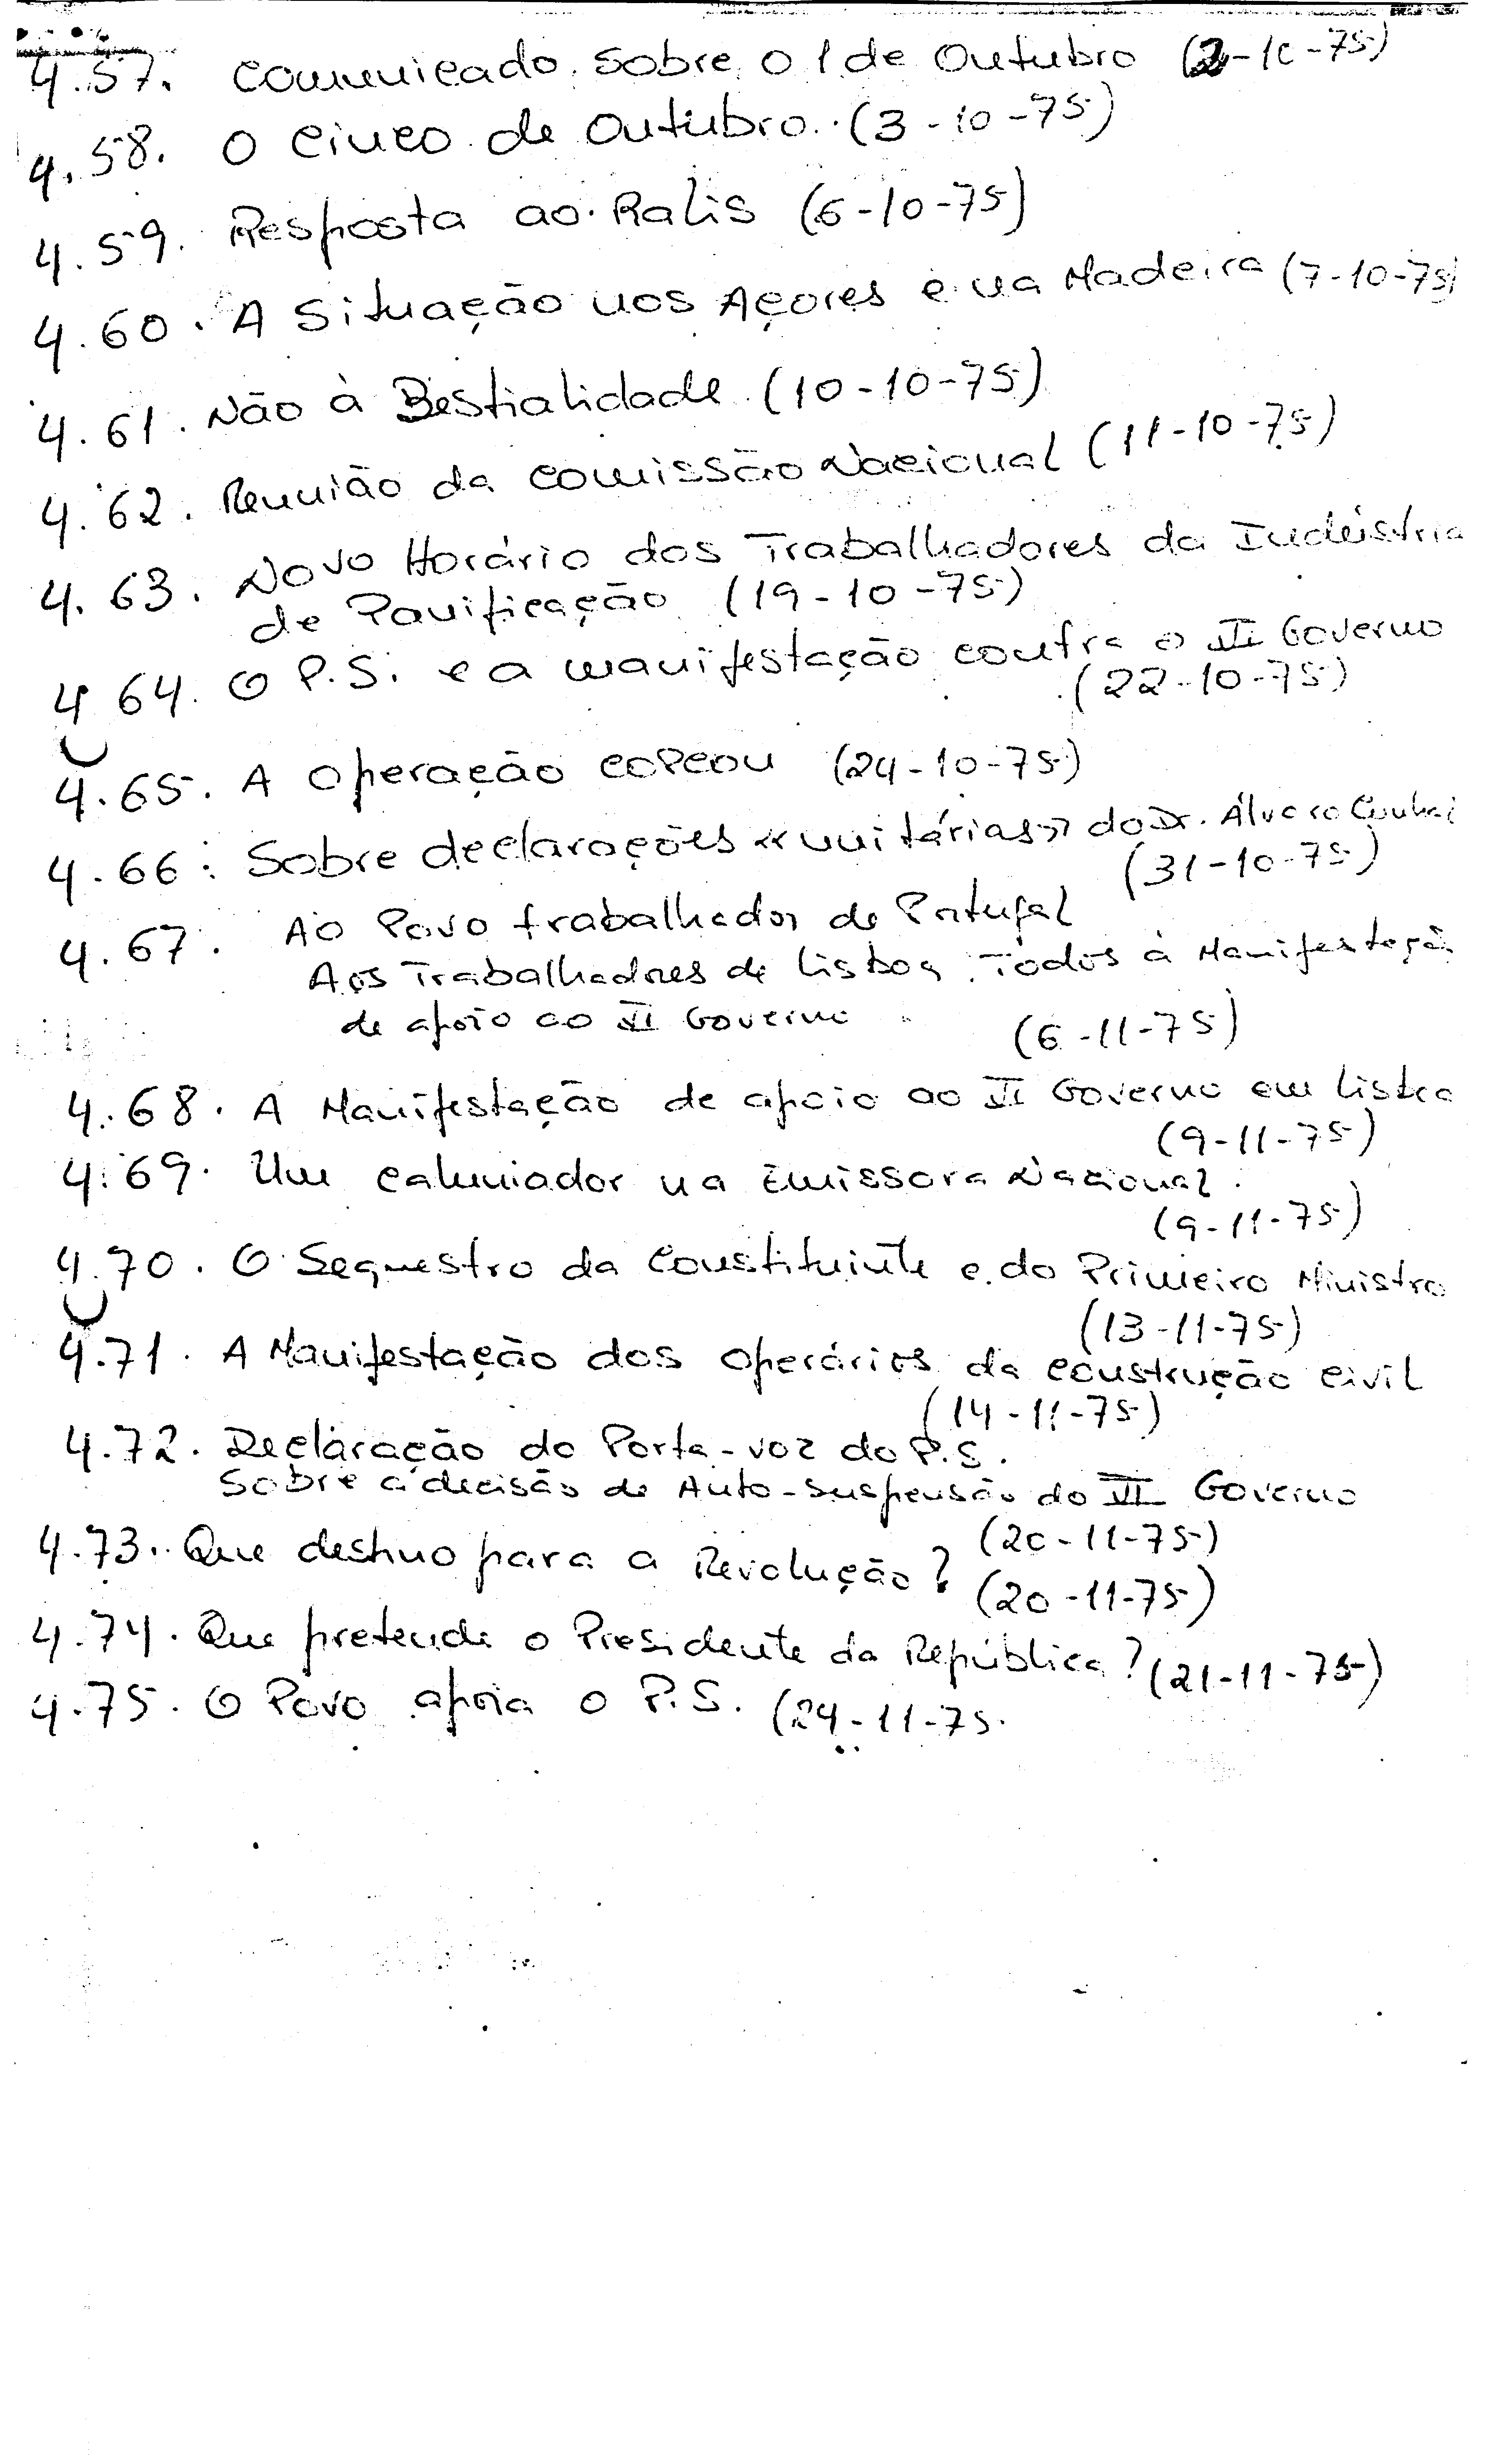 4.57. Comunicado sobre o 1 de Outubro (2-10-75)
4.58. O Cinco de Outubro. (3-10-75)
4.59. Resposta ao Ralis (6-10-75)
4.60. A Situação nos Açores e na Madeira (7-10-75)
4.61. Não à Bestialidade (10-10-75)
4.62. Reunião da Comissão Nacional (11-10-75)
4.63. Novo Horário dos Trabalhadores da Indústria
de Panificação (19-10-75)
4.64. O P.S. e a manifestação contra o VI Governo
(22-10-75)
4.65. A Operação COPCON (24-10-75)
4.66. Sobre declarações «unitárias» do Dr. Álvaro Cunhal
(31-10-75)
4.67. Ao Povo trabalhador de Portugal
Aos Trabalhadores de Lisboa Todos à Manifestação
de apoio ao VI Governo
(6-11-75)
4.68. A Manifestação de apoio ao VI Governo em Lisboa
(9-11-75)
4.69. Um caluniador na Emissora Nacional.
(9-11-75)
4.70. O Sequestro da Constituinte e do Primeiro Ministro
(13-11-75)
4.71. A Manifestação dos operários da construção civil
(14-11-75)
4.72. Declaração do Porta-voz do P.S.
Sobre a decisão de Auto-suspensão do VI Governo
(20-11-75)
4.73. Que destino para a Revolução? (20-11-75)
4.74. Que pretende o Presidente da República? (21-11-75)
4.75. O Povo apoia o P.S. (24-11-75.